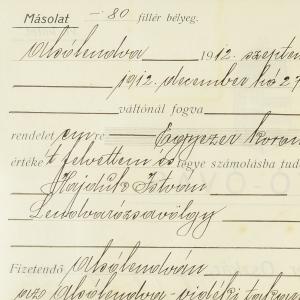 Másolat -80 fillér bélyeg.
Alsólendva 1912. szeptem
1912. december hó 27
váltónál fogva
rendelet em re Egyezer koron
érték t felvettem és tegye számolásba tud
Hajduk István
Lendvarózsavölgy
Fizetendő Alsólendván
az Alsólendva-vidéki takar